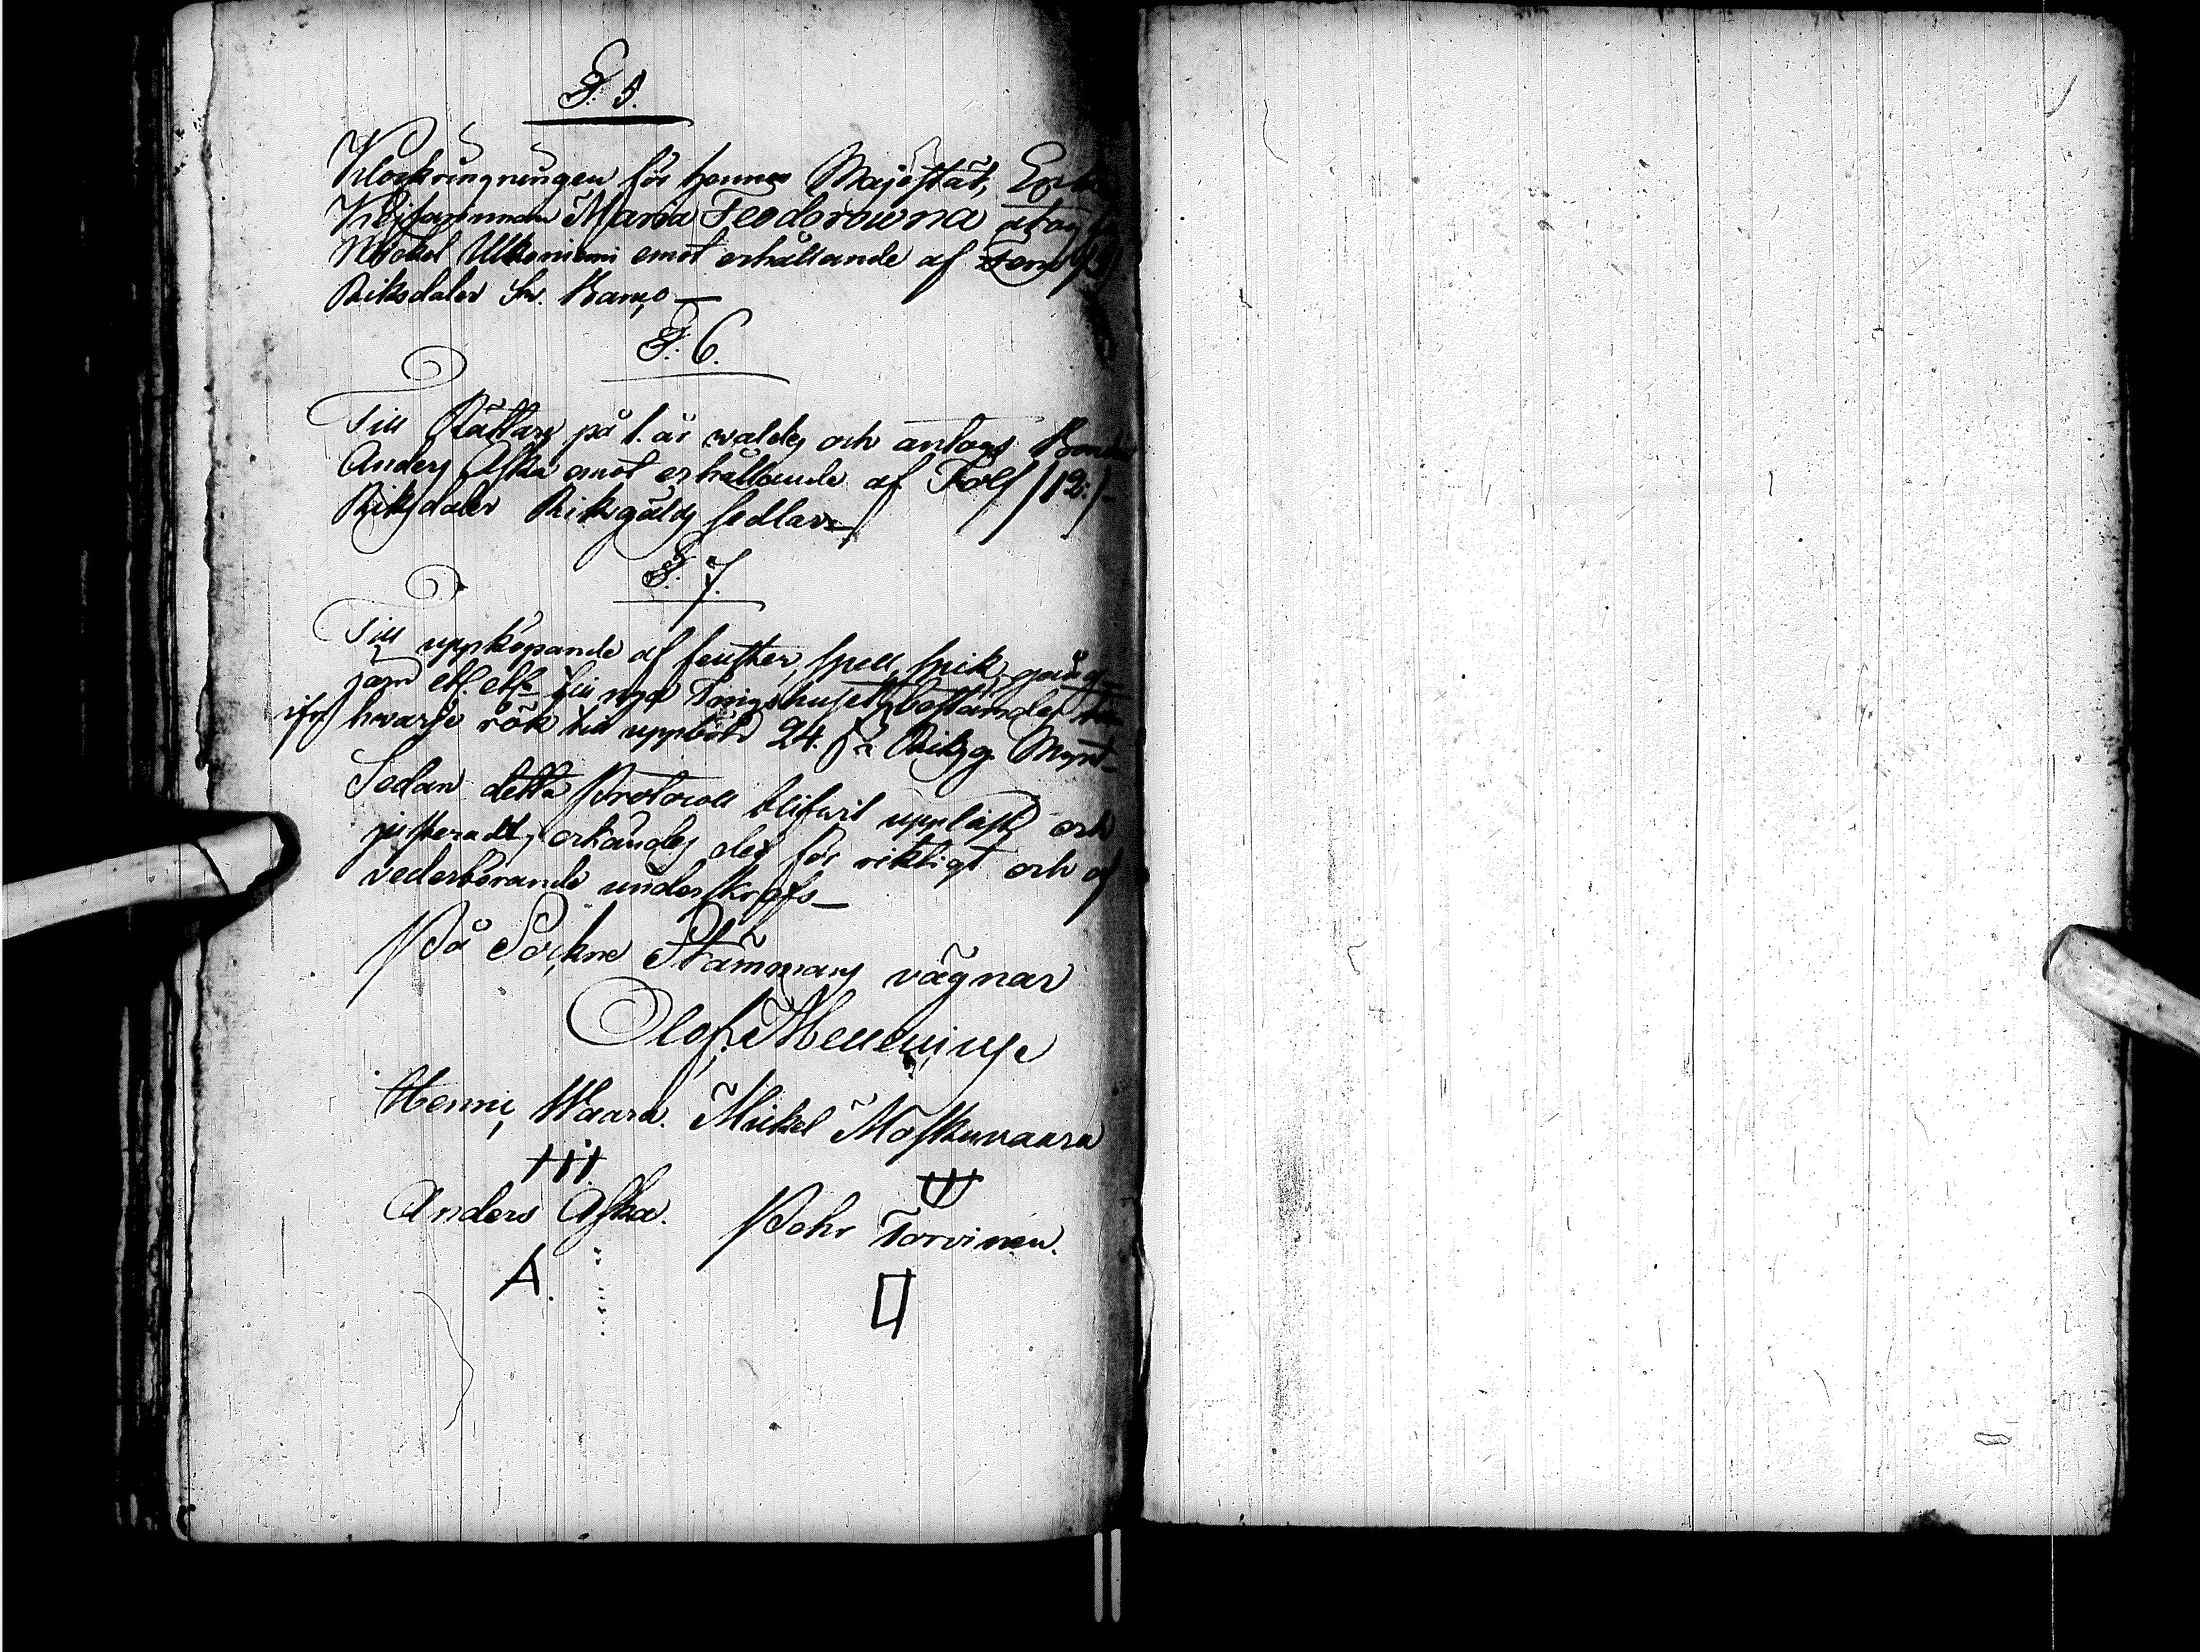 §. 5.
Klockringningen för hennes Majestät, Enke
Kejsarinnan Maria Feodorowna åtog sig
Mickel Ulkoniemi emot erhållande af Fem (5)
Riksdaler Sv. Banco—
§. 6.
Till Rättare på 1. år waldes och antogs Bonden
Anders Aska emot erhållande af Tolf /12:/
Riksdaler Riksgälds sedlar—
§. 7.
Till uppköpande af fenster, spell, spik, gång-
jern etc. etc. för nya Tingshuset bestämdes
ifrå hwarje rök till uppbörd 24. s. Riksg. Mynt—
Sedan detta Protocoll blifwit uppläst och
justeradt, erkändes det för riktigt och af
vederbörande underskrefs—
På Sockne Stämmans vägnar
Olof
Henric Waara. Mickel Moskuvaara
Anders Aska. Pehr Torvinen.
A.